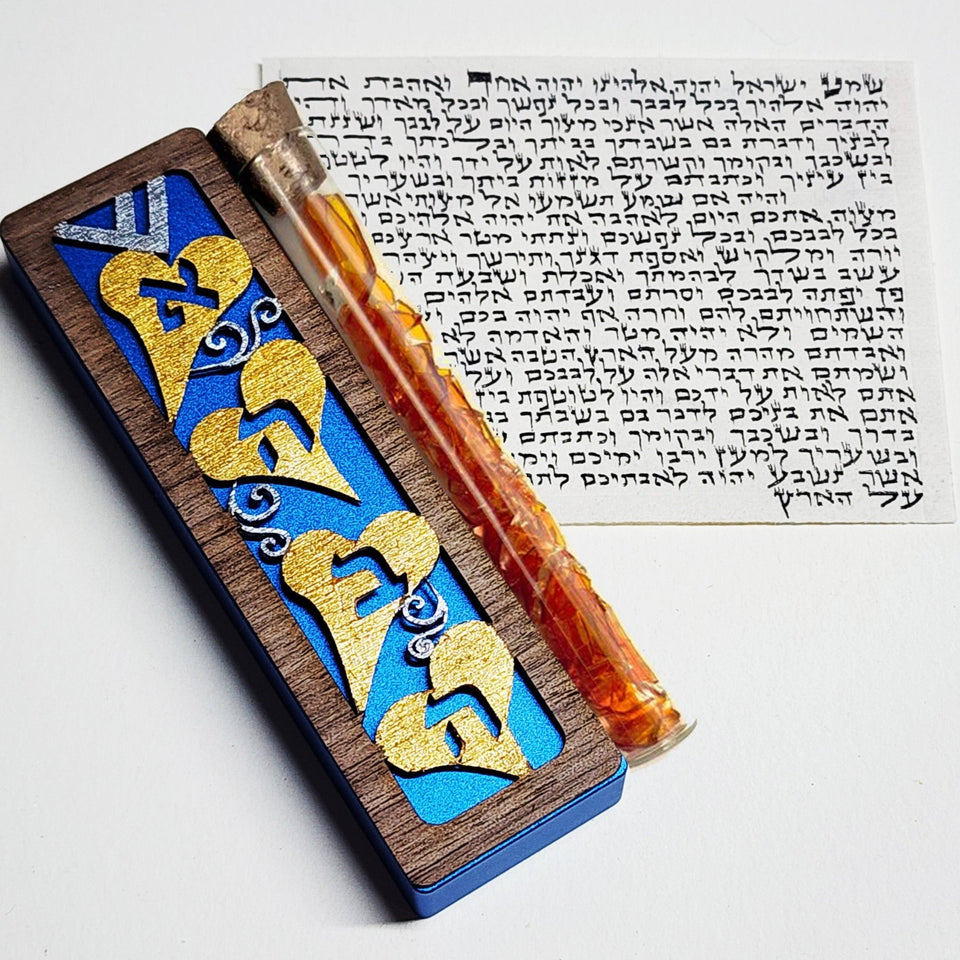 ש
אהבה
שמע ישראל יהוה אלהינו יהוה אחד ואהבת את
יהוה אלהיך בכל לבבך ובכל נפשך ובכל מאדך
הדברים האלה אשר אנכי מצוך היום על לבבך ושננתם
לבניך ודברת בם בשבתך בביתך ובלכתך בדרך
ובשכבך ובקומך וקשרתם לאות על ידך והיו
בין עיניך וכתבתם על מזזות ביתך ובשעריך
והיה אם שמע תשמעו אל מצותי אשר
מצוה אתכם היום לאהבה את יהוה אלהיכם
בכל לבבכם ובכל נפשכם ונתתי מטר ארצכם
יורה ומלקוש ואספת דגנך ותירשך
עשב בשדך לבהמתך ואכלת ושבעת
פן יפתה לבבכם וסרתם ועבדתם אלהים
והשתחויתם להם וחרה אף יהוה בכם
השמים ולא יהיה מטר והאדמה לא
ואבדתם מהרה מעל הארץ הטבה אשר
ושמתם את דברי אלה על לבבכם ועל
אתם לאות על ידכם והיו לטוטפת
אתם את בניכם לדבר בם בשבתך
בדרך ובשכבך ובקומך וכתבתם
ובשעריך למען ירבו ימיכם
אשר נשבע יהוה לאבתיכם
על הארץ